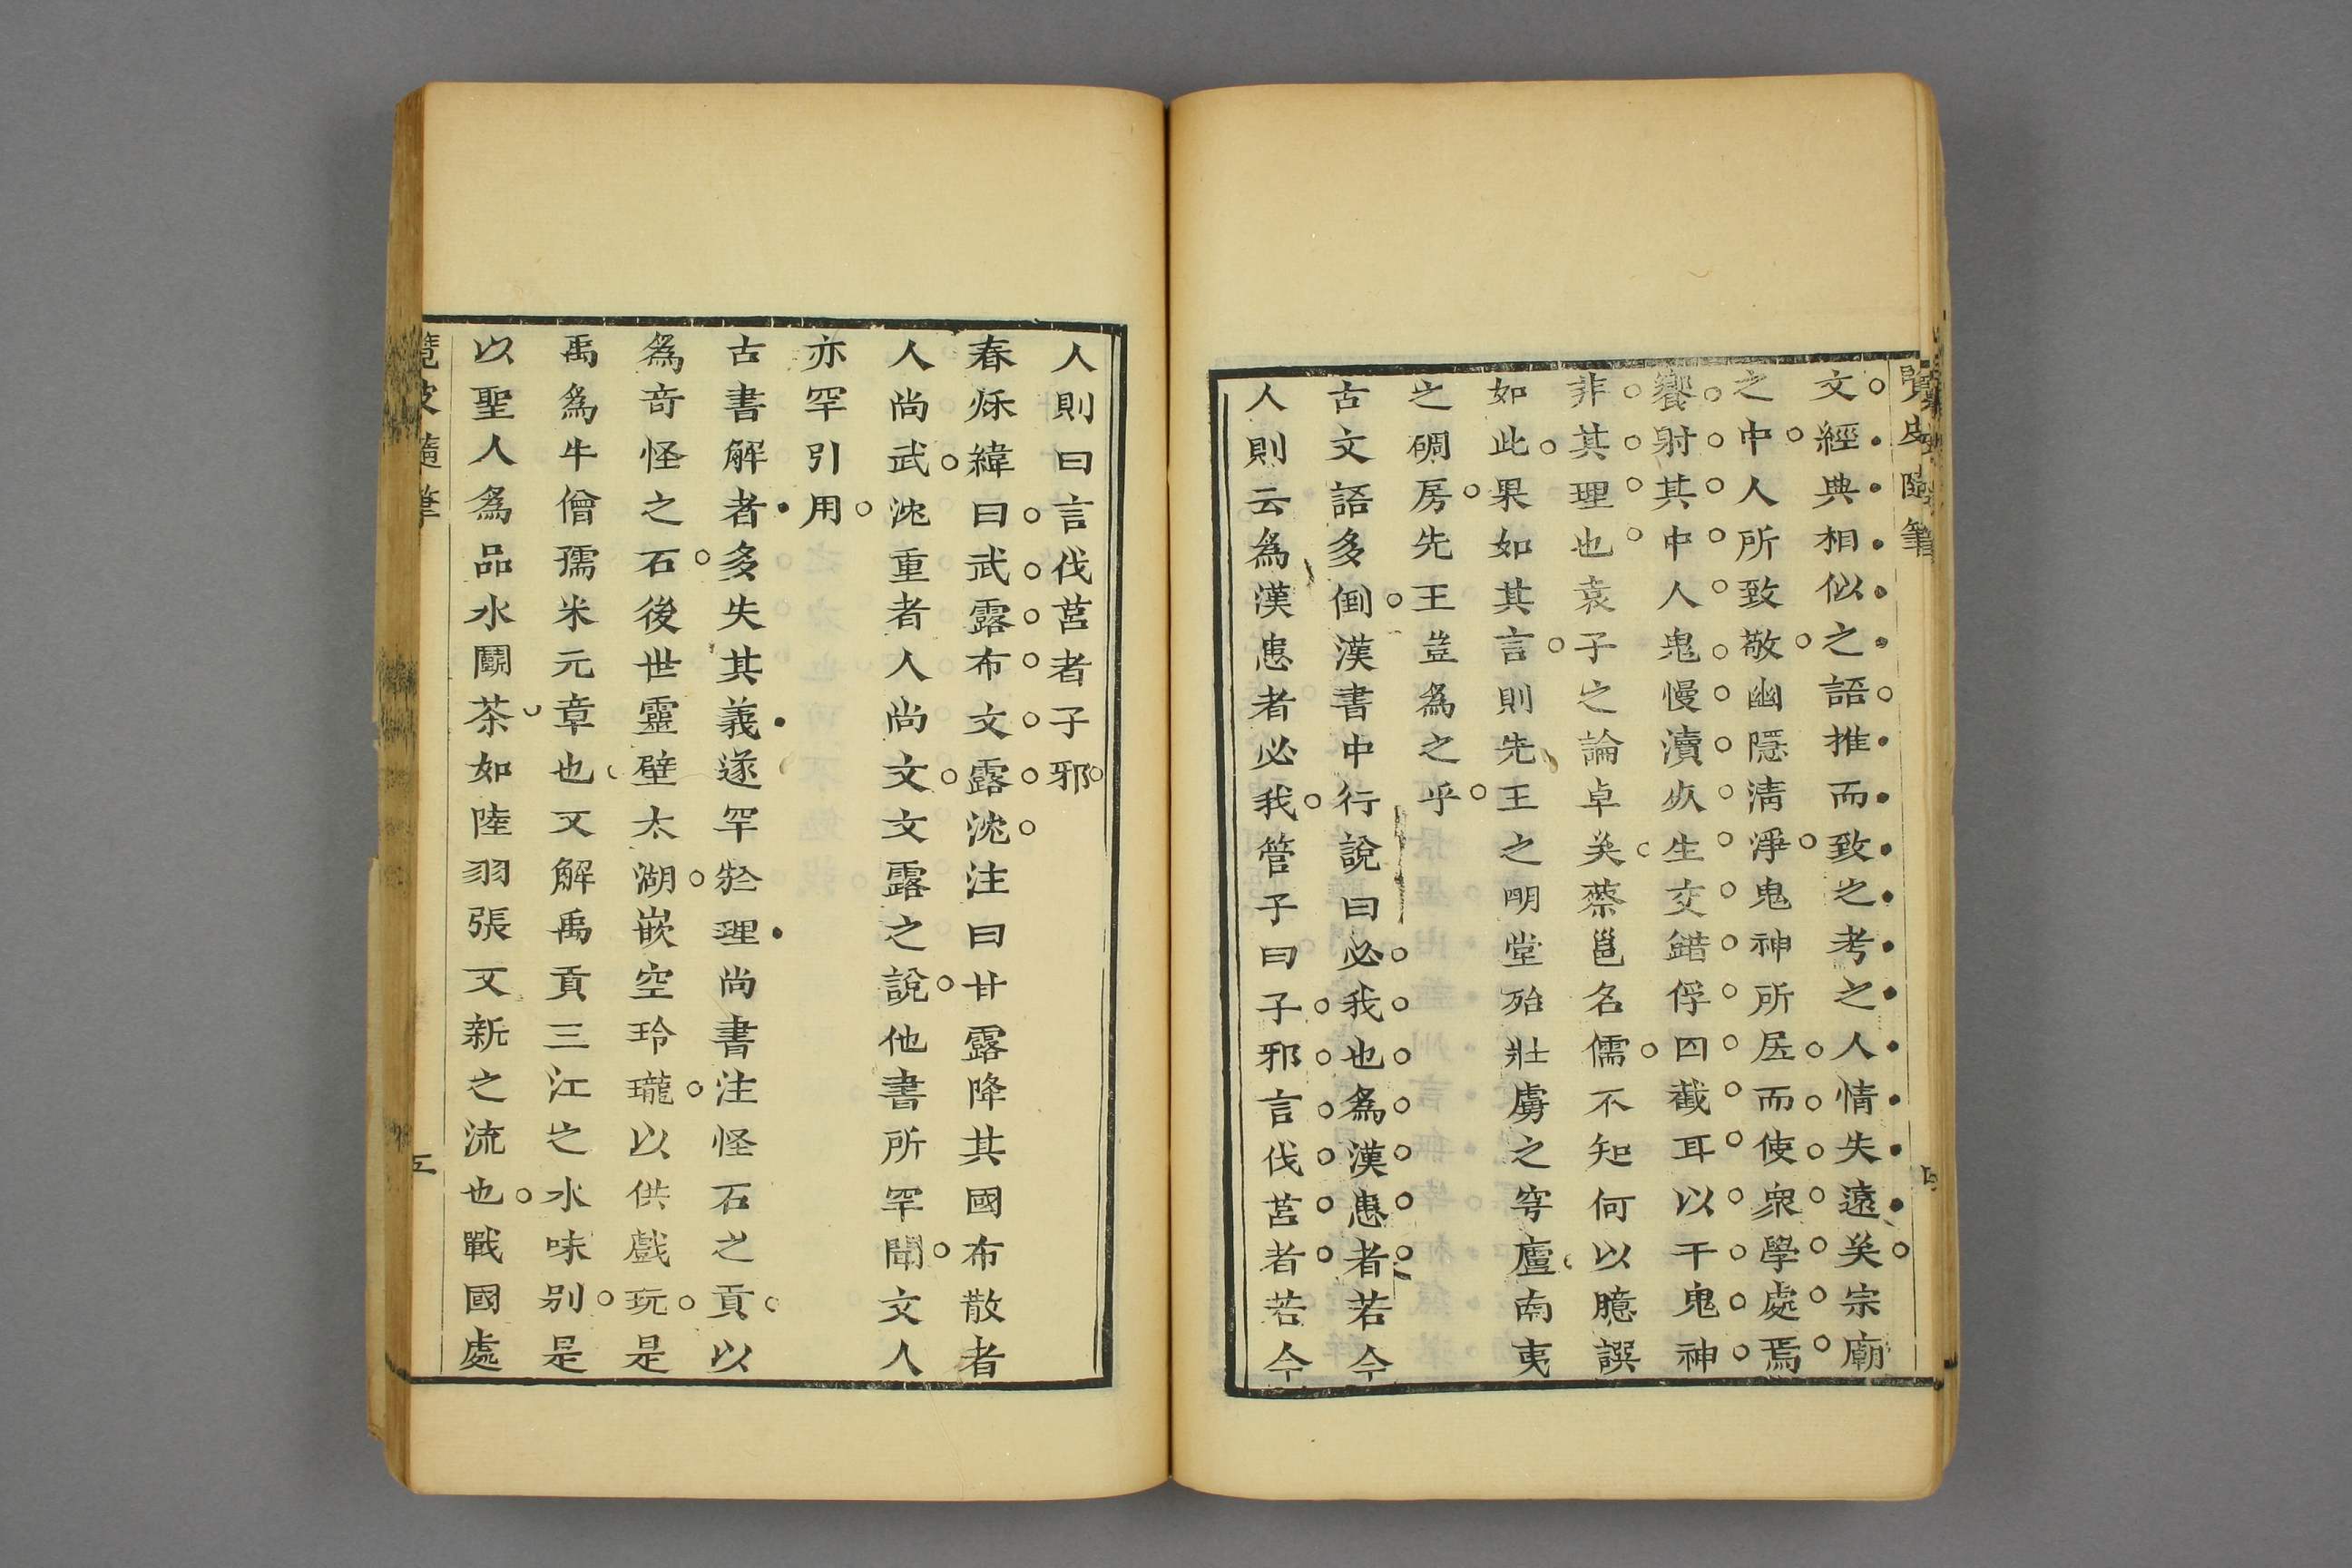 文經典相似之語推而致之考之人情失遠矣宗廟
之中人所致敬幽隱清淨鬼神所居而使衆學處焉
饗射其中人鬼慢瀆死生交錯俘囚截耳以干鬼神
非其理也袁子之論卓矣蔡邕名儒不知何以臆譔
如此果如其言則先王之明堂殆壯虜之穹廬南夷
之碉房先王豈爲之乎
古文語多倒漢書中行說曰必我也爲漢患者若今
人則云爲漢患者必我管子曰子邪言伐莒者若今
人則曰言伐莒者子邪
春秌緯曰武露布文露沈注曰甘露降其國布散者
人尚武沈重者人尚文文露之說他書所罕聞文人
亦罕引用
古書解者多失其義遂罕於理尚書注怪石之貢以
爲奇怪之石後世靈壁太湖嵌空玲瓏以供戲玩是
禹爲牛僧孺米元章也又解禹貢三江之水味别是
以聖人爲品水鬭茶如陸羽張又新之流也戰國處